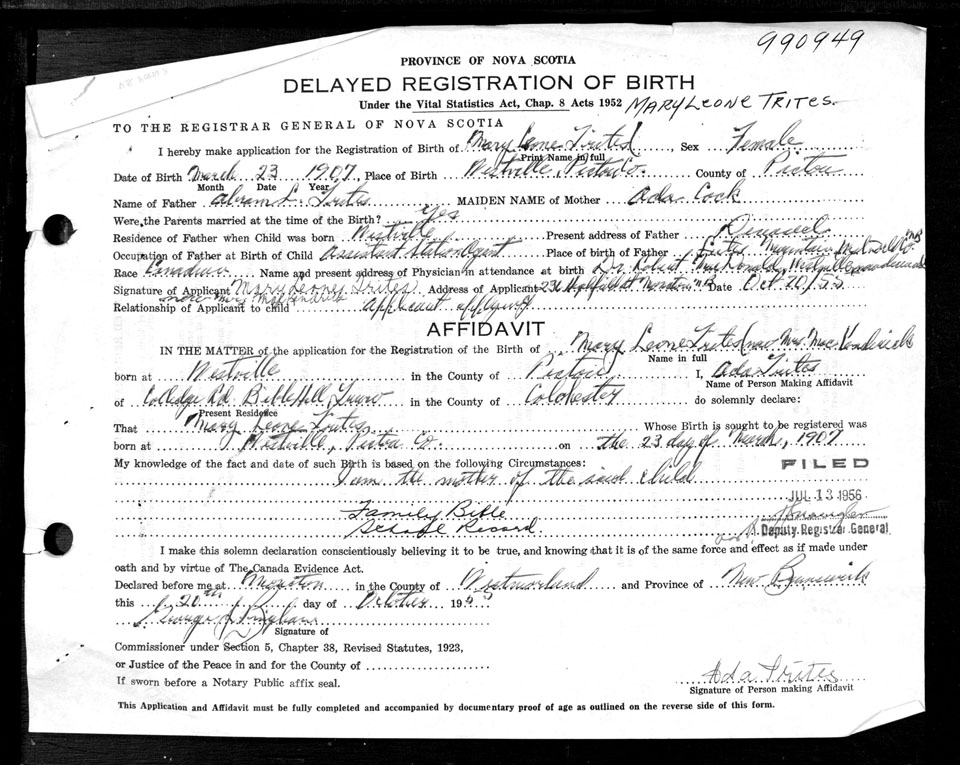 990949
PROVINCE OF NOVA SCOTIA
DELAYED REGISTRATION OF BIRTH
Under the Vital Statistics Act, Chap. 8 Acts 1952 MARY LEONE TRITES
TO THE REGISTRAR GENERAL OF NOVA SCOTIA
I hereby make application for the Registration of Birth of Mary Leone Trites, Sex Female
Print Name in full
Date of Birth March 23 1907, Place of Birth Westville, Pictou Co. County of Pictou
Month Date Year
Name of Father Abram L. Trites MAIDEN NAME of Mother Ada Cock
Were the Parents married at the time of the Birth? Yes
Residence of Father when Child was born Westville Present address of Father Deceased
Occupation of Father at Birth of Child Assistant Station Agent Place of birth of Father Trites Mountain
Race Canadian Name and present address of Physician in attendance at birth Dr. Robert
Signature of Applicant Mary Leone Trites Address of Applicant Date Oct 20/55
now Mrs
Relationship of Applicant to child applicant applying
AFFIDAVIT
IN THE MATTER of the application for the Registration of the Birth of Mary Leone Trites (now Mrs Mac
Name in full
born at Westville in the County of Pictou I, Ada Trites
Name of Person Making Affidavit
of College Rd. Bible Hill, Truro in the County of Colchester do solemnly declare:
Present Residence
That Mary Leone Trites Whose Birth is sought to be registered was
born at Westville, Pictou Co. on the 23 day of March, 1907
My knowledge of the fact and date of such Birth is based on the following Circumstances:
I am the mother of the said child
FILED
JUL 13 1956
Family Bible
School Record
Deputy Registrar General
I make this solemn declaration conscientiously believing it to be true, and knowing that it is of the same force and effect as if made under
oath and by virtue of The Canada Evidence Act.
Declared before me at Moncton in the County of Westmorland and Province of New Brunswick
this 20th day of October 1955
George
Signature of
Commissioner under Section 5, Chapter 38, Revised Statutes, 1923,
or Justice of the Peace in and for the County of
If sworn before a Notary Public affix seal.
Ada Trites
Signature of Person making Affidavit
This Application and Affidavit must be fully completed and accompanied by documentary proof of age as outlined on the reverse side of this form.